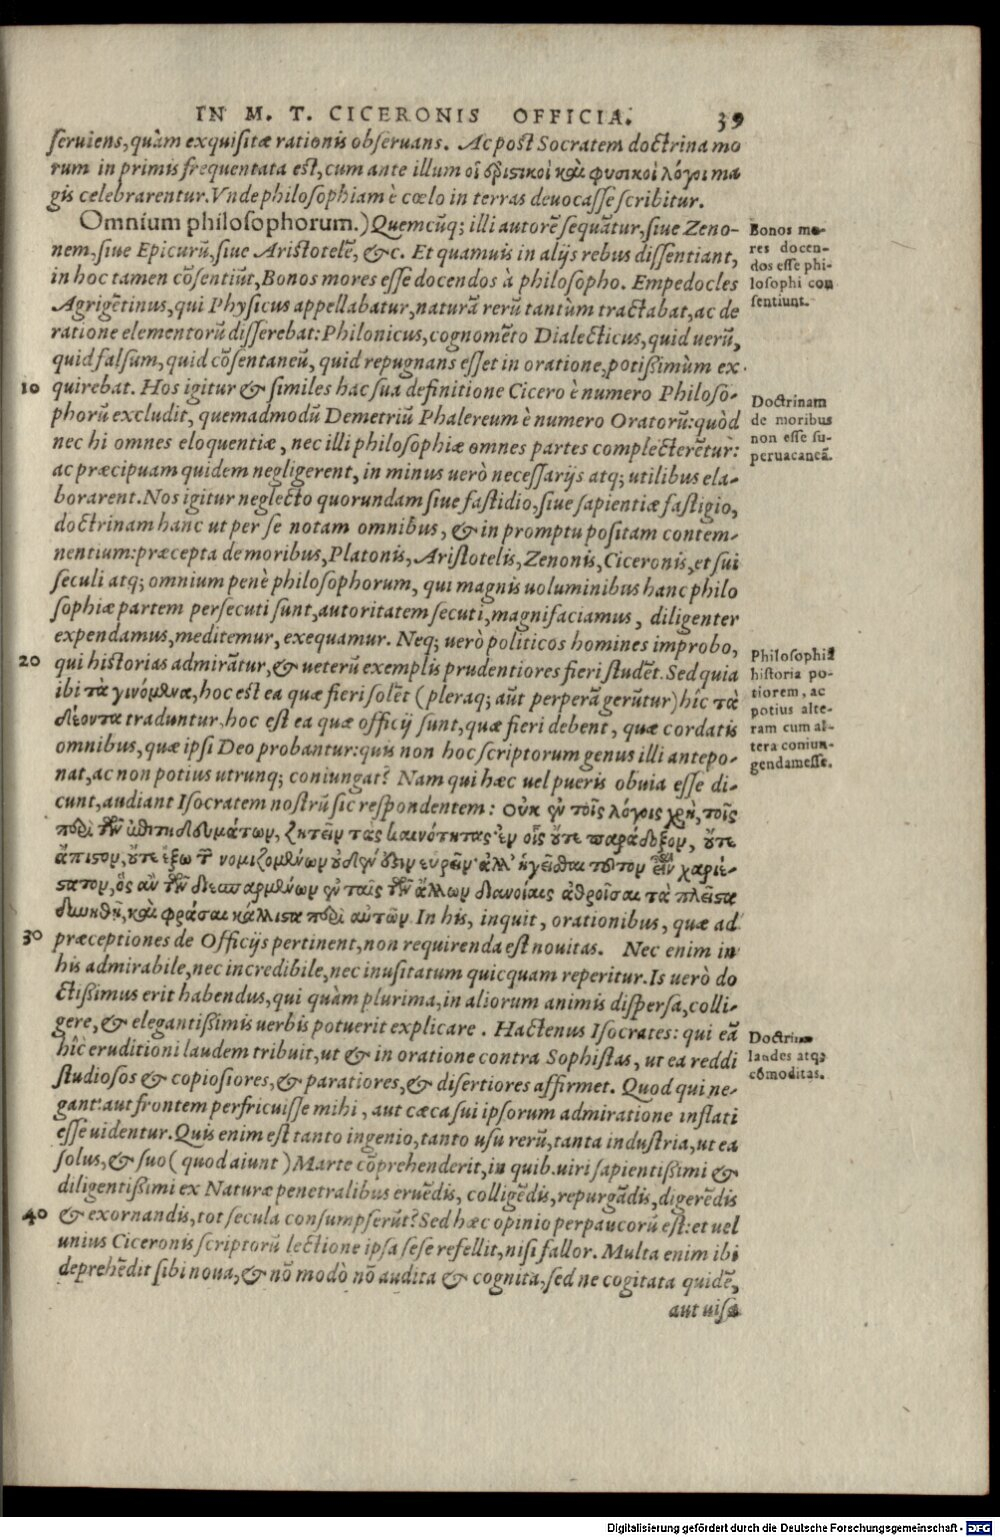 IN M. T. CICERONIS OFFICIA. 39
seruiens, quàm exquisitæ rationis obseruans. Ac post Socratem doctrina mo
rum in primis frequentata est, cum ante illum οἱ ὁριστικοὶ καὶ φυσικοὶ λόγοι ma
gis celebrarentur. Vnde philosophiam è cœlo in terras deuocasse scribitur.
Omnium philosophorum.) Quemcũq; illi autorẽ sequãtur, siue Zeno-
nem, siue Epicurũ, siue Aristotelẽ, &c. Et quamuis in alijs rebus dissentiant,
in hoc tamen cõsentiũt, Bonos mores esse docendos à philosopho. Empedocles
Agrigẽtinus, qui Physicus appellabatur, naturã rerũ tantùm tractabat, ac de
ratione elementorũ disserebat: Philonicus, cognomẽto Dialecticus, quid uerũ,
quid falsum, quid cõsentaneũ, quid repugnans esset in oratione, potißimùm ex-
10 quirebat. Hos igitur & similes hac sua definitione Cicero è numero Philoso-
phorũ excludit, quemadmodũ Demetriũ Phalereum è numero Oratorũ: quòd
nec hi omnes eloquentiæ, nec illi philosophiæ omnes partes complecterẽtur:
ac præcipuam quidem negligerent, in minus uerò necessarijs atq; utilibus ela-
borarent. Nos igitur neglecto quorundam siue fastidio, siue sapientiæ fastigio,
doctrinam hanc ut per se notam omnibus, & in promptu positam contem-
nentium: præcepta de moribus, Platonis, Aristotelis, Zenonis, Ciceronis, et sui
seculi atq; omnium penè philosophorum, qui magnis uoluminibus hanc philo
sophiæ partem persecuti sunt, autoritatem secuti, magni faciamus, diligenter
expendamus, meditemur, exequamur. Neq; uerò politicos homines improbo,
20 qui historias admirãtur, & ueterũ exemplis prudentiores fieri studẽt. Sed quia
ibi τὰ γινόμενα, hoc est ea quæ fieri solẽt (pleraq; aũt perperã gerũtur) hîc τὰ
δέοντα traduntur, hoc est ea quæ officij sunt, quæ fieri debent, quæ cordatis
omnibus, quæ ipsi Deo probantur: quis non hoc scriptorum genus illi antepo-
nat, ac non potius utrunq; coniungat? Nam qui hæc uel pueris obuia esse di-
cunt, audiant Isocratem nostrũ sic respondentem: Οὐκ ἐν τοῖς λόγοις χρὴ, τοῖς
περὶ τῶν ἐπιτηδευμάτων, ζητεῖν τὰς καινότητας· ἐν οἷς οὔτε παράδοξον, οὔτε
ἄπιστον, οὔτε ἔξω τῶν νομιζομένων οὐδὲν ὅζιν εὑρεῖν· ἀλλ' ἡγεῖσθαι τοῦτον εἶναι χαριέ-
στατον, ὃς ἂν τῶν διεσπαρμένων ἐν ταῖς τῶν ἄλλων διανοίαις ἀθροῖσαι τὰ πλεῖστα
δυνηθῇ, καὶ φράσαι κάλλιστα περὶ αὐτῶν. In his, inquit, orationibus, quæ ad
30 præceptiones de Officijs pertinent, non requirenda est nouitas. Nec enim in
his admirabile, nec incredibile, nec inusitatum quicquam reperitur. Is uerò do
ctißimus erit habendus, qui quàm plurima, in aliorum animis dispersa, colli-
gere, & elegantißimis uerbis potuerit explicare. Hactenus Isocrates: qui eã
hîc eruditioni laudem tribuit, ut & in oratione contra Sophistas, ut ea reddi
studiosos & copiosiores, & paratiores, & disertiores affirmet. Quod qui ne-
gant: aut frontem perfricuisse mihi, aut cæca sui ipsorum admiratione inflati
esse uidentur. Quis enim est tanto ingenio, tanto usu rerũ, tanta industria, ut ea
solus, & suo (quod aiunt) Marte cõprehenderit, in quib. uiri sapientißimi &
diligentißimi ex Naturæ penetralibus eruẽdis, colligẽdis, repurgãdis, digerẽdis
40 & exornandis, tot secula consumpserũt? Sed hæc opinio perpaucorũ est: et uel
unius Ciceronis scriptorũ lectione ipsa sese refellit, nisi fallor. Multa enim ibi
deprehẽdit sibi noua, & nõ modò nõ audita & cognita, sed ne cogitata quidẽ,
aut uisa
Bonos mo-
res docen-
dos esse phi-
losophi con
sentiunt.
Doctrinam
de moribus
non esse su-
peruacaneã.
Philosophiã
historia po-
tiorem, ac
potius alte-
ram cum al-
tera coniun-
gendam esse.
Doctrinæ
laudes atq;
cõmoditas.
Digitalisierung gefördert durch die Deutsche Forschungsgemeinschaft - DFG